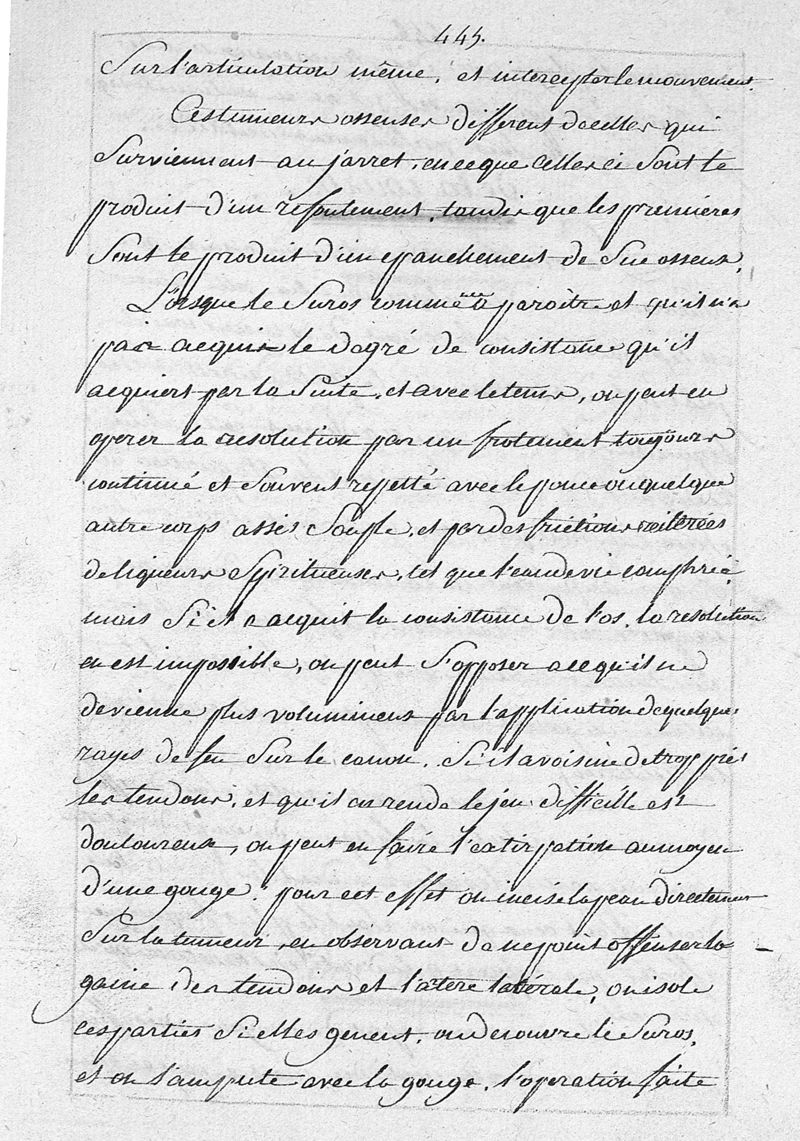 445.
Sur l'articulation même, et intercepter le mouvement.
Ces tumeurs osseuses different de celles qui
Surviennent au jarret, en ce que Celles ci Sont le
produit d'un refoulement, tandis que les premieres
Sont le produit d'un epanchement de Suc osseux.
Lorsque le Suros commence a paroitre et qu'il n'a
pas acquis le degré de consistance qu'il
acquiert par la Suite, et avec le tems, on peut en
operer la resolution par un frotement toujours
continué et Souvent repetté avec le pouce ou quelque
autre corps assés Souple, et par des frictions reiterées
de liqueurs Spiritueuses, tel que l'eau de vie camphrée,
mais Si il a acquit la consistance de l'os, la resolution
en est impossible, on peut S'opposer a ce qu'il ne
devienne plus volumineux par l'application de quelque
rayes de feu Sur le canon. Si il avoisine de trop près
les tendons, et qu'il en rende le jeu difficille et
douloureux, on peut en faire l'extirpation au moyen
d'une gouge. pour cet effet on incise la peau directement
Sur la tumeur, en observant de ne point offenser la
gaine des tendons et l'artere latérale, on isole
ces parties Si elles genent, on decouvre le Suros,
et on l'ampute avec la gouge. l'operation faite